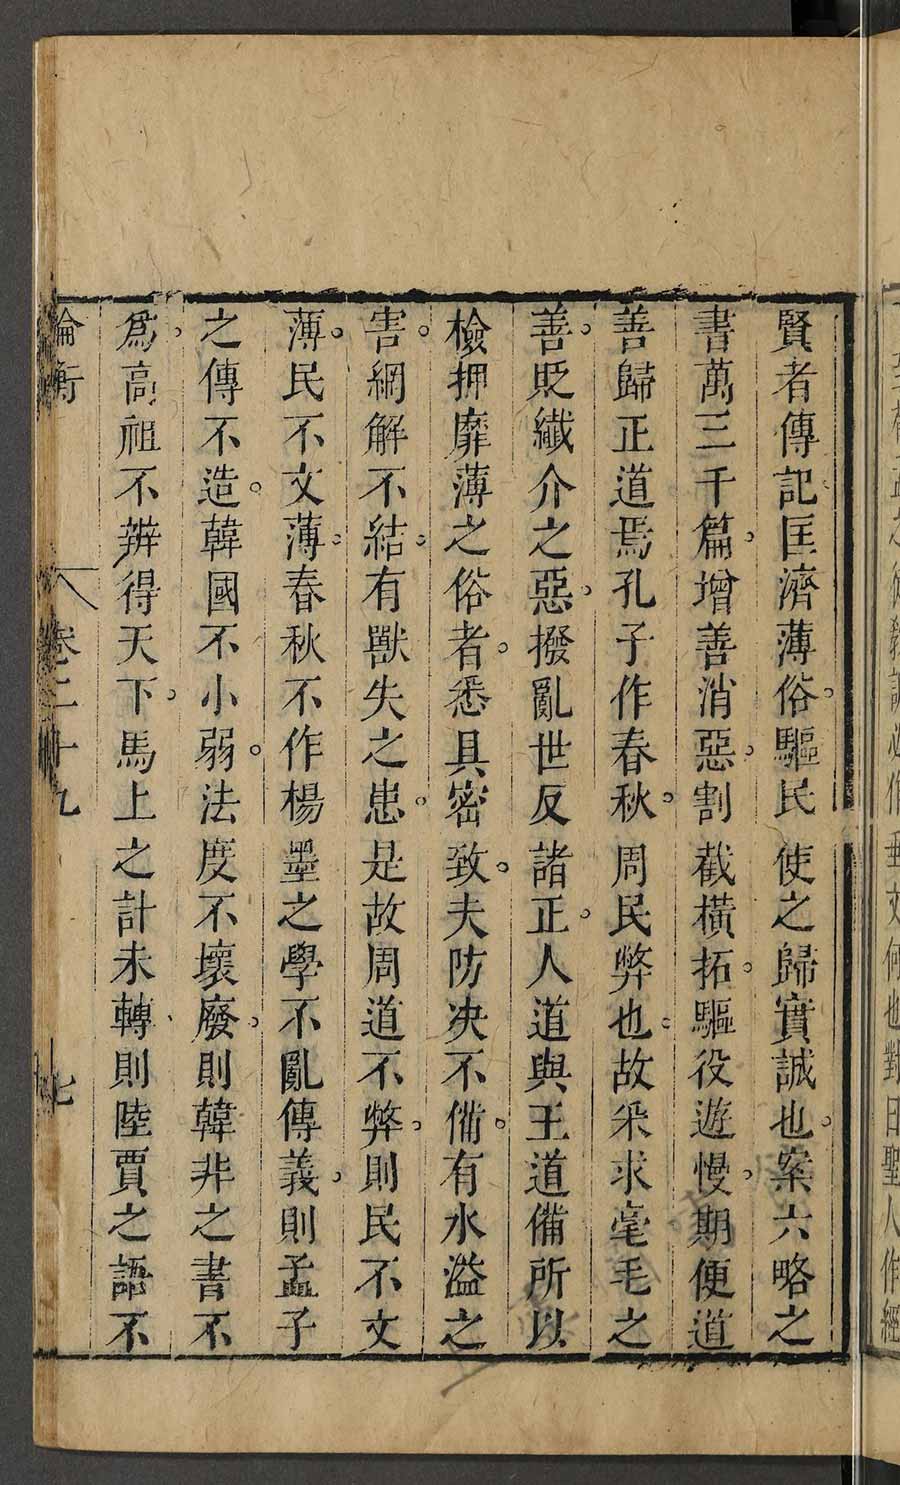 賢者傳記匡濟薄俗。驅民使之歸實誠也。案六略之
書萬三千篇。增善消惡。割截橫拓。驅役遊慢。期便道
善歸正道焉孔子作春秋。周民弊也。故采求毫毛之
善。貶纖介之惡。撥亂世反諸正。人道與王道備所以
檢押靡薄之俗者。悉具密致。夫防決不備。有水溢之
害。網解不結。有獸失之患。是故周道不弊。則民不文
薄。民不文薄。春秋不作楊墨之學不亂傳義。則孟子
之傳不造。韓國不小弱。法度不壞廢。則韓非之書不
為。高祖不辨得天下。馬上之計未轉、則陸賈之語不
論衡 卷二十九 七
聖人作經